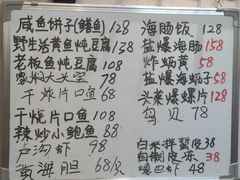 咸鱼饼子(鳝鱼) 128
野生活黄鱼炖豆腐 138
老板鱼炖豆腐 108
家焖大头宝 78
干炸片口鱼 68
干烧片口鱼 108
辣炒小鲍鱼 88
卢沟虾 98
黄海胆 68/只
海肠饭 128
盐爆海肠 158
炸蛎黄 58
盐爆海蛎子 58
头菜爆螺片 128
鸟贝 78
白米拌蜇皮 38
自制皮冻 38
暖巴虾 48